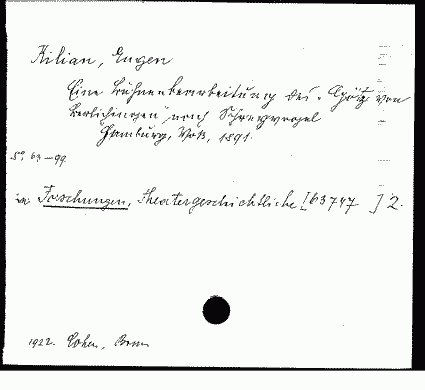 Kilian, Eugen
Eine Bühnenbearbeitung des "Götz von
Berlichingen" nach Schreyvogel
Hamburg, Voß, 1891.
8° 63-99
in Forschungen, Theatergeschichtliche [63747 ] 2.
1922. Cohen, Bonn